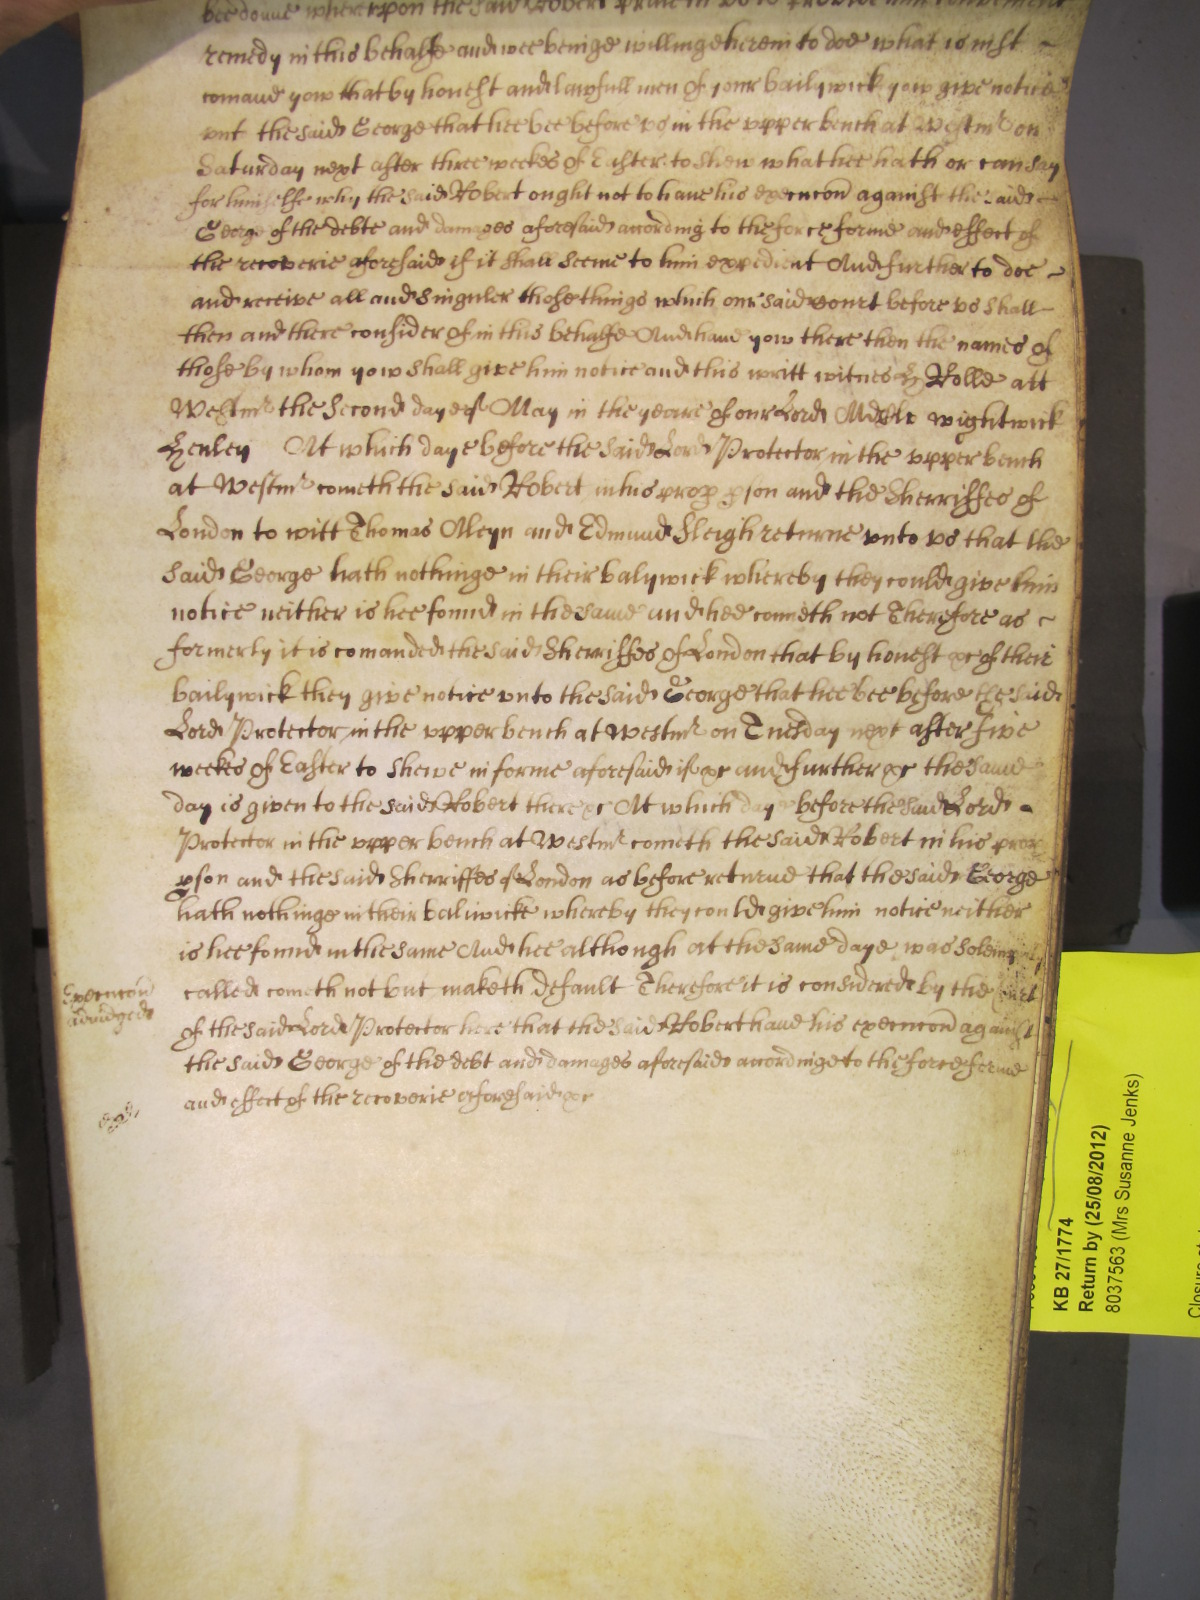 bee donne whereupon the said Robert praieth us to provide him convenient
remedy in this behalfe and wee beinge willinge herein to doe what is iust
comaund yow that by honest and lawfull men of your bailywick yow give notice
unt the said George that hee bee before us in the upper bench at Westmr on
Saturday next after three weekes of Easter to shew what hee hath or can say
for himselfe why the said Robert ought not to have his execucon against the said
George of the debte and damages aforesaid according to the force forme and effect of
the recoverie aforesaid if it shall seeme to him expedient And further to doe
and receive all and singuler those things which our said court before us shall
then and there consider of in this behalfe And have yow there then the names of
those by whom yow shall give him notice and this writt witnes H Rolle att
Westmr the second day of May in the yeare of our Lord Wightwick
Henley At which daye before the said Lord Protector in the upper bench
at Westmr cometh the said Robert in his prop pson and the Sherriffes of
London to witt Thomas Aleyn and Edmund Sleigh returne unto us that the
said George hath nothinge in their balywick whereby they could give him
notice neither is hee found in the same and hee cometh not Therefore as
formerly it is comanded the said Sherriffes of London that by honest &c of their
bailywick they give notice unto the said George that hee bee before the said
Lord Protector in the upper bench at Westmr on Tuesday next after five
weekes of Easter to shewe in forme aforesaid if &c and further &c the same
day is given to the said Robert there &c At which day before the said Lord
Protector in the upper bench at Westmr cometh the said Robert in his prop
pson and the said Sherriffes of London as before returne that the said George
hath nothinge in their baliwicke whereby they could give him notice neither
is hee found in the same And hee although at the same daye was solemnly
called cometh not but maketh default Therefore it is considered by the Court
Execucon
adiudged
of the said Lord Protector here that the said Robert have his execucon against
the said George of the debt and damages aforesaid accordinge to the force forme
and effect of the recoverie aforesaid &c
KB 27/1774
Return by (25/08/2012)
8037563 (Mrs Susanne Jenks)